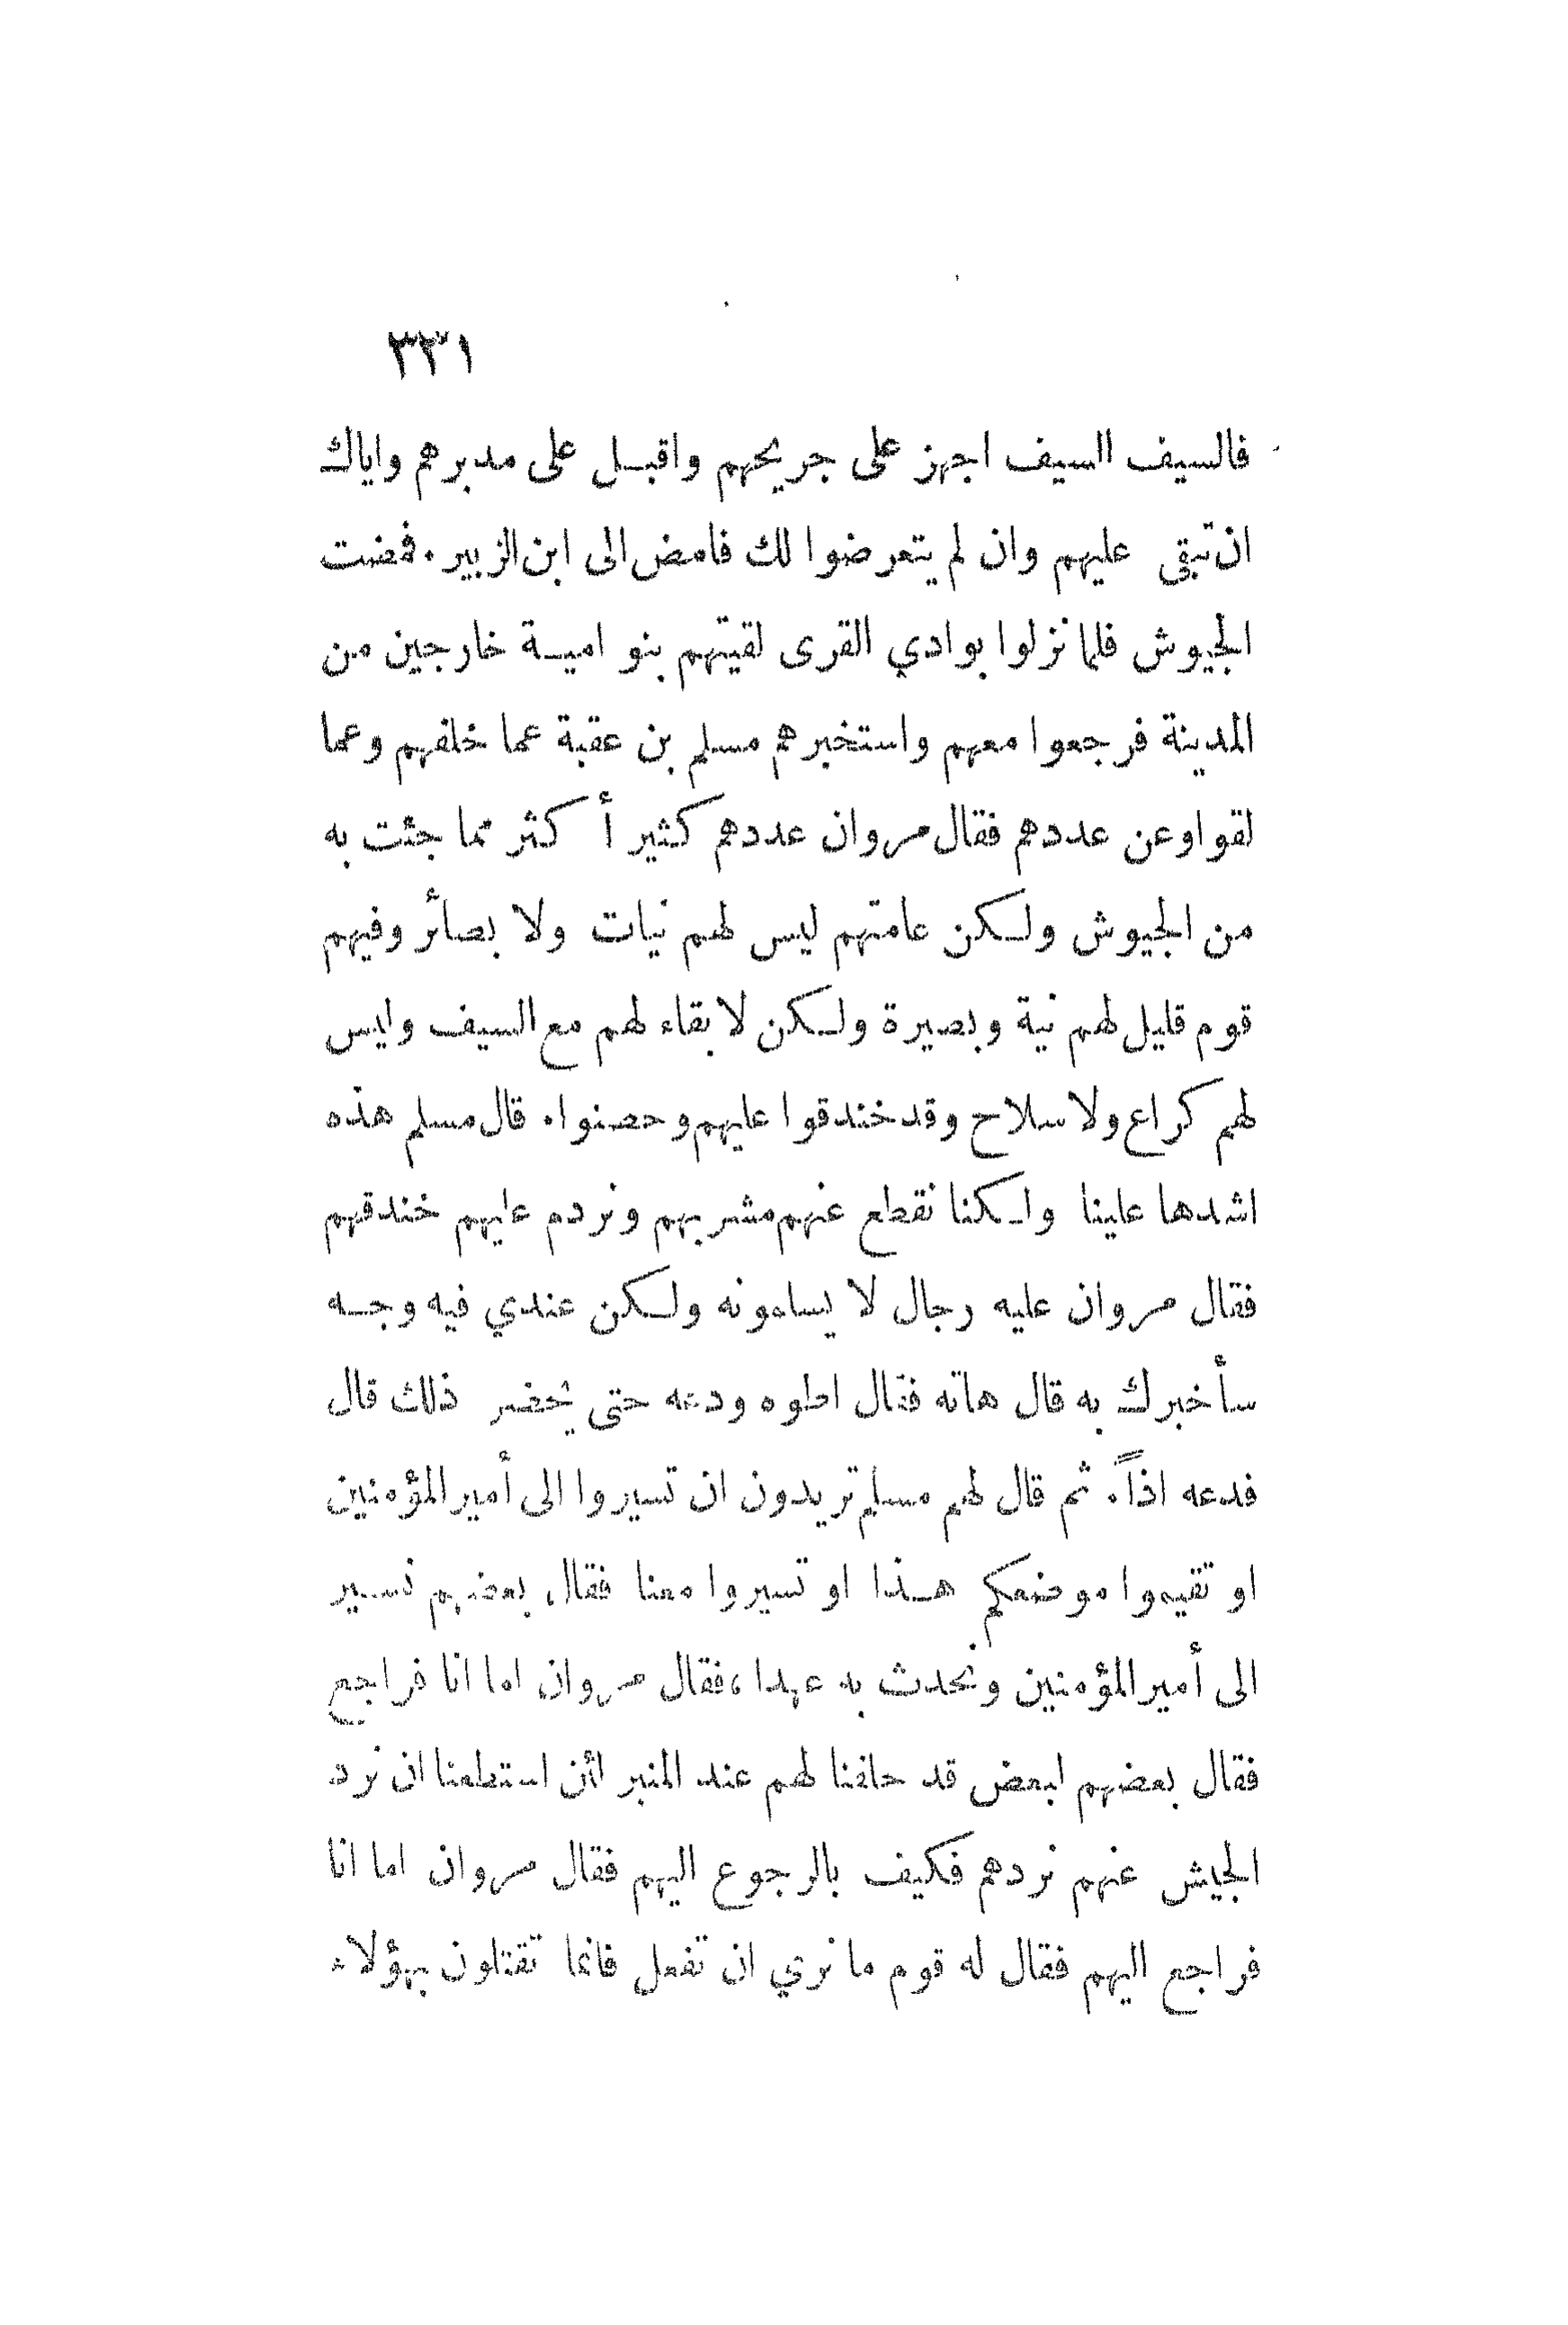 ٣٣١
فالسيف السيف اجهز على جريحهم واقبل على مدبرهم واياك
ان تبقى عليهم وان لم يتعرضوا لك فامض الى ابن الزبير. فمضت
الجيوش فلما نزلوا بوادي القرى لقيتهم بنو امية خارجين من
المدينة فرجعوا معهم واستخبرهم مسلم بن عقبة عما خلفهم وعما
لقوا وعن عددهم فقال مروان عددهم كثير أكثر مما جئت به
من الجيوش ولكن عامتهم ليس لهم نيات ولا بصائر وفيهم
قوم قليل لهم نية وبصيرة ولكن لا بقاء لهم مع السيف وليس
لهم كراع ولا سلاح وقد خندقوا عليهم وحصنوا. قال مسلم هذه
اشدها علينا ولكنا نقطع عنهم مشربهم ونردم عليهم خندقهم
فقال مروان عليه رجال لا يسلمونه ولكن عندي فيه وجه
سأخبرك به قال هاته فقال اطوه ودعه حتى يحضر ذلك قال
فدعه اذاً. ثم قال لهم مسلم تريدون ان تسيروا الى أمير المؤمنين
او تقيموا موضعكم هذا او تسيروا معنا فقال بعضهم نسير
الى أمير المؤمنين ونحدث به عهدا، فقال مروان اما انا فراجع
فقال بعضهم لبعض قد حلفنا لهم عند المنبر لئن استطعنا ان نرد
الجيش عنهم نردهم فكيف بالرجوع اليهم فقال مروان اما انا
فراجع اليهم فقال له قوم ما نرى ان تفعل فانما تقتلون بهؤلاء